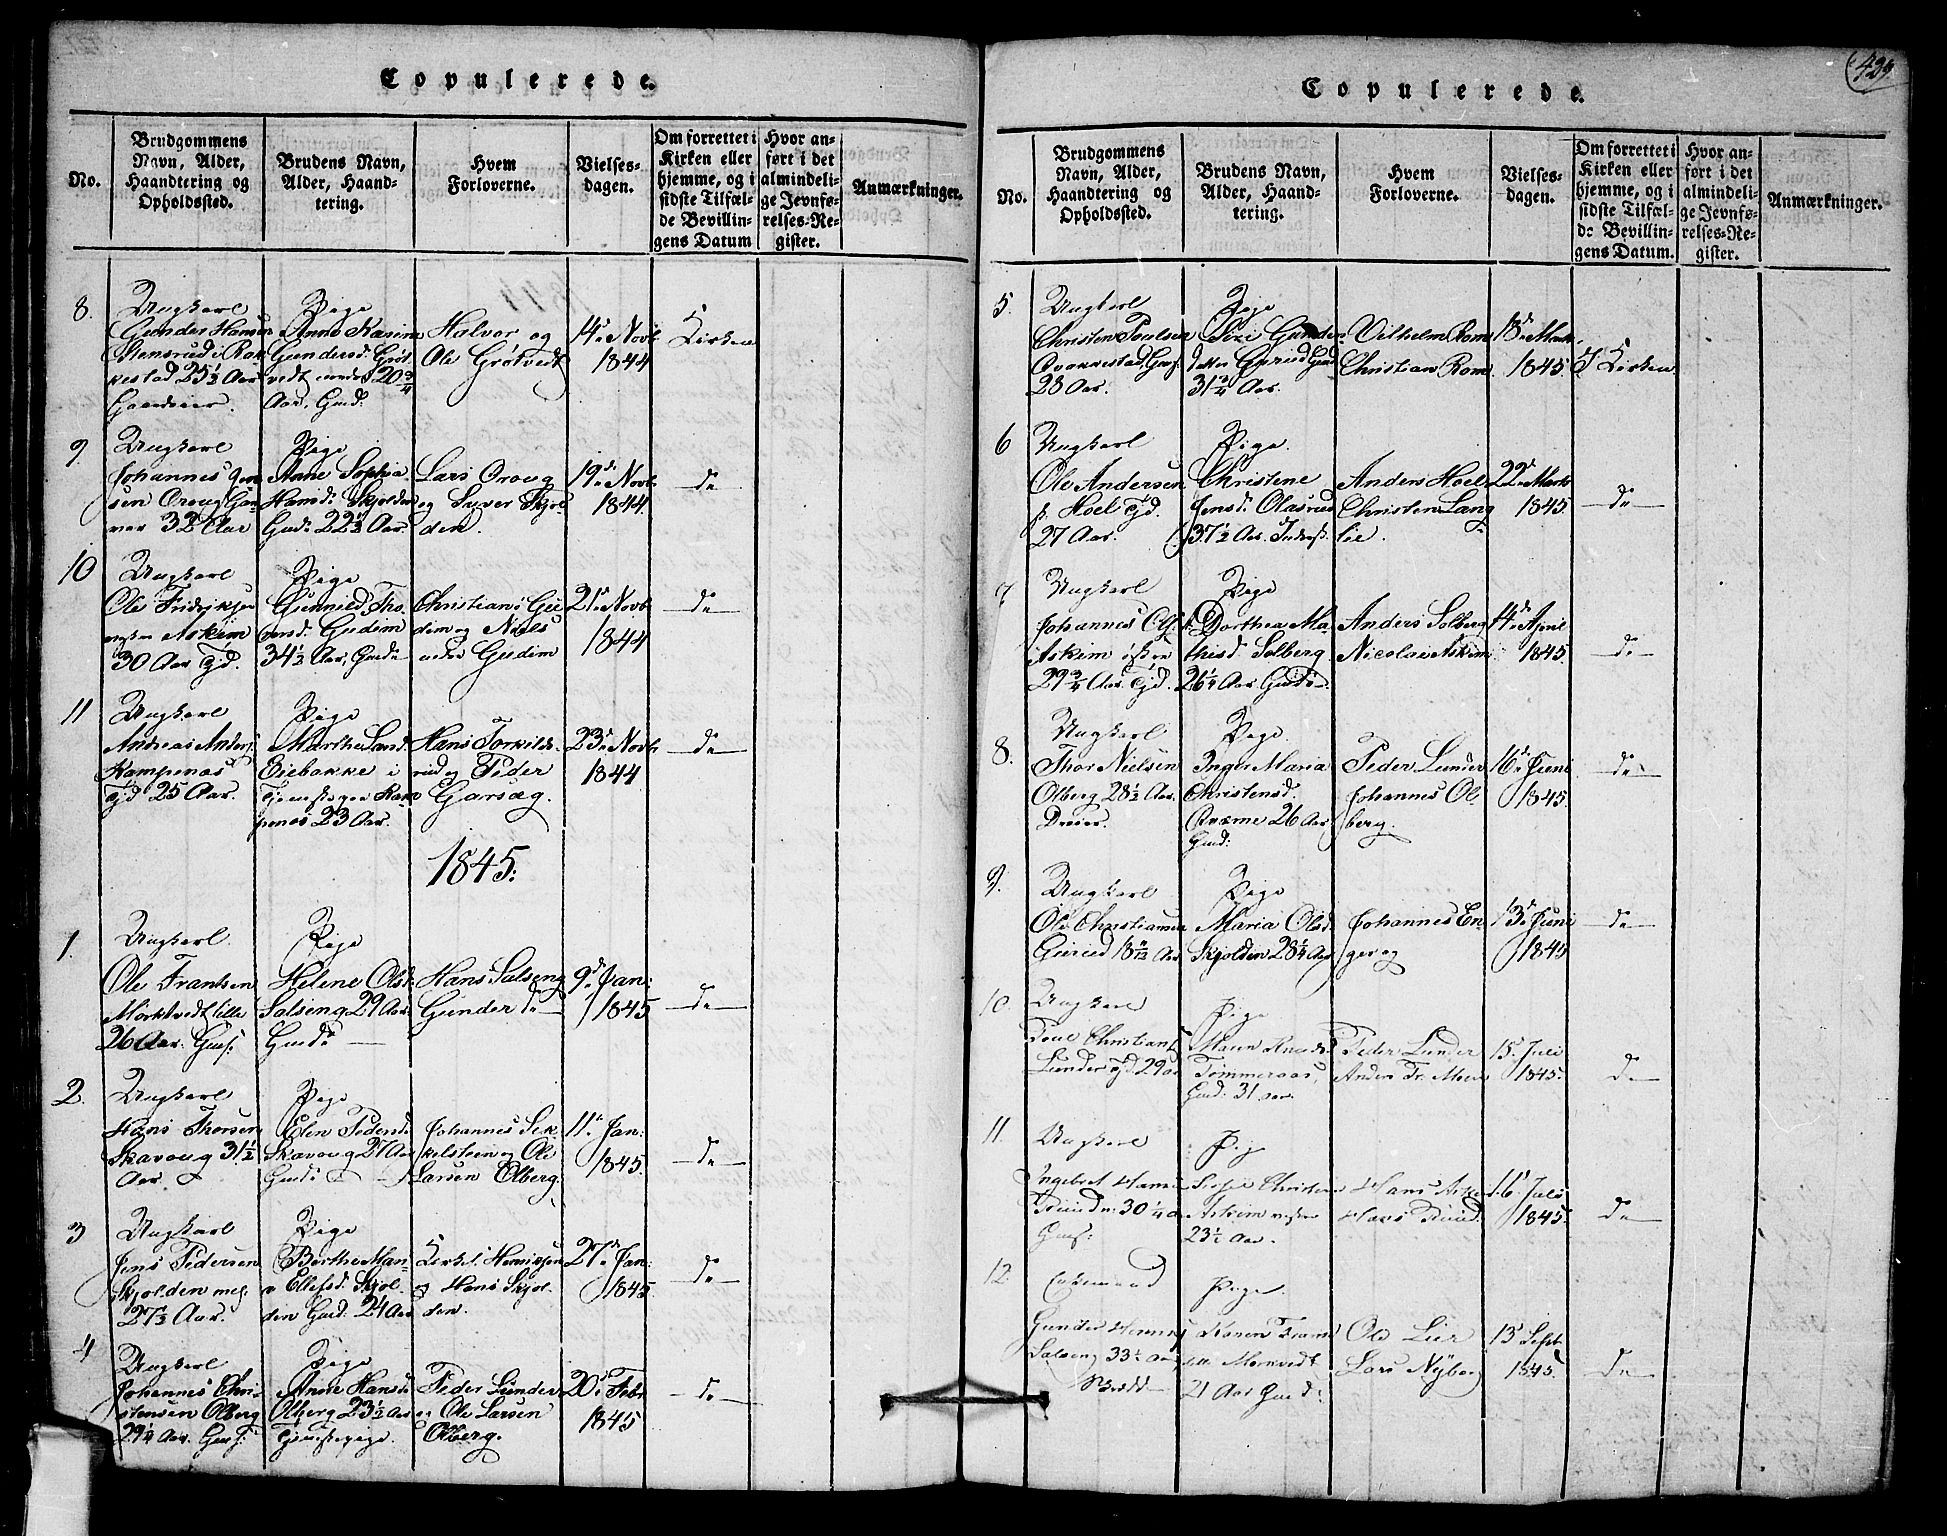 Copulerede.
No.
Brudgommens
Navn, Alder,
Haandtering og
Opholdssted.
Brudens Navn,
Alder, Haand-
tering.
Hvem
Forloverne.
Vielses-
dagen.
Om forrettet i
Kirken eller
hjemme, og i
sidste Tilfæl-
de Bevillin-
gens Datum
Hvor an-
ført i det
almindeli-
ge Jevnfø-
relses-Re-
gister.
Anmærkninger.
8.
Ungkarl
Gunder Hansen
Stensrud i Rak-
kestad 25½ Aar
Pige
Anne Karine
Gundersd. Grøt-
vedt 20¾
Aar. Gmd.
Halvor og
Ole Grøtvedt
14de Novb.
1844
Kirken
9.
Ungkarl
Johannes Jen-
sen Oroug Gar-
ner 32 Aar
Pige
Anne Sophia
Hansd. Skjolden
Gmd. 22½ Aar.
Lars Oroug
og Syver Skjol-
den.
19de Novb.
1844.
do
10
Ungkarl
Ole Fridriksen
Askim
30 Aar Tjd.
Pige
Gunnild Tho-
resd. Gudim
34½ Aar, Gmd.
Christian Gu-
dim og Niels
Gudim
21de Novb.
1844
do
11
Ungkarl
Andreas Anders.
Kampenæs
Tjd 25 Aar.
Pige
Marthe Land.
Eiebakke i
Tjeneste paa Kam-
penæs 23 Aar.
Hans Torkilds-
rud og Peder
Garsæg.
23de Novb.
1844
do
1845.
1.
Ungkarl.
Ole Frantsen
Mørkvedt lille
26 Aar. Gmf.
Pige
Helene Olsd.
Salseng 29 Aar.
Gmd.
Hans Salseng
Gunder do
9de Jan:
1845
do
2.
Ungkarl
Hans Thorsen
Skaroug 31½
Aar.
Pige
Elen Pedersd.
Skaroug 27 Aar
Gmd.
Johannes Sek-
kelsteen og Ole
Larsen Olberg.
11te Jan:
1845.
do
3
Ungkarl
Jens Pedersen
Skjolden
27½ Aar.
Pige
Berthe Mari-
a Ellefsd. Skjol-
den Gmd. 24 Aar
Henriksen
og Hans Skjol-
den.
27de Jan:
1845
do
4
Ungkarl
Johannes Chri-
stensen Olberg
29¼ Aar. Gmf.
Pige
Anne Hansd.
Olberg 23½ Aar
Tjenestepige.
Peder Lunder
og Ole Larsen
Olberg.
20de Febr.
1845
do
Copulerede.
429
No.
Brudgommens
Navn, Alder,
Haandtering og
Opholdssted.
Brudens Navn,
Alder, Haand-
tering.
Hvem
Forloverne.
Vielses-
dagen.
Om forrettet i
Kirken eller
hjemme, og i
sidste Tilfæl-
de Bevillin-
gens Datum.
Hvor an-
ført i det
almindeli-
ge Jevnfø-
relses-Re-
gister.
Anmærkninger.
5.
Ungkarl
Christen Poulsen
28 Aar.
Pige
Siri Gunder-
datter Gmd.
31¾ Aar.
Vilhelm Rom
Christian Rom
18de Marts
1845.
I Kirken
6
Ungkarl
Ole Andersen
p. Hoel Tjd.
27 Aar.
Pige.
Christine
Jensd. Olasrud
37½ Aar.
Anders Hoel
Christen Lang-
lie.
22de Marts
1845.
do
7.
Ungkarl
Johannes Ols.
Askim
29¾ Aar. Tjd.
Pige
Dorthea Ma-
thisd. Solberg
26¼ Aar. Gmd.
Anders Solberg
Nicolai Askim
14de April
1845.
do
8.
Ungkarl
Thor Nielsen
Olberg 28½ Aar.
Dreier.
Pige
Inger Maria
Christensd.
Qværne 26 Aar
Gmd:
Peder Lunder
Johannes Ol-
berg.
16de Juni
1845.
do
9.
Ungkarl
Ole Christiansen
Guirud 18 Aar
Pige
Maria Olsd.
Skjolden 28¼ Aar
Johannes En-
ger og
13de Juni
1845
do
10.
Ungkarl
Poul Christians.
Lunder Tjd 29
Pige
Maren Knudsd.
Tømmeraas,
Gmd: 31 Aar.
Peder Lunder
Anders Tr. Moen
15. Juli
1845.
do
11.
Ungkarl
Ingebret Hansen
30¼
Gmf:
Pige
Sophie Christens.
Askim
23½ Aar.
Hans Askim
Hans
16 Juli
1845.
do
12.
Enkemand
Gunder Hansen
Salseng 33½ Aar
Pige.
Karen Frants.
Mørkvedt
21 Aar Gmd:
Ole Lier
Lars Nyborg
13 Septb
1845.
do